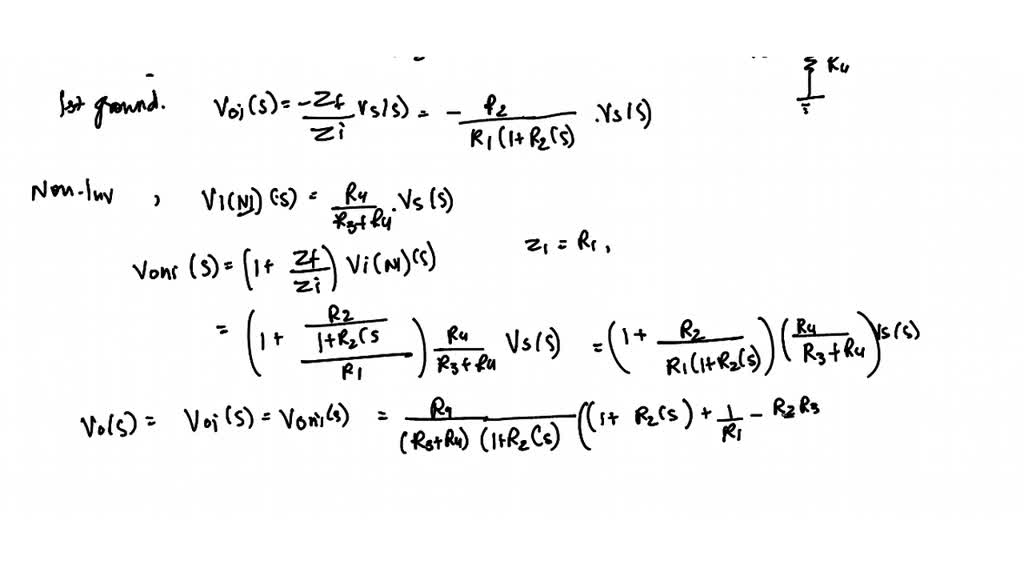 R4
1st ground. Voi(s) = -Zf/Zi Vs(s) = - R2/(R1(1+R2Cs)) . Vs(s)
Non-Inv , Vi(NI)(s) = R4/(R3+R4) . Vs(s)
Z1 = R1,
Voni(s) = (1 + Zf/Zi) Vi(NI)(s)
= (1 + (R2/(1+R2Cs))/R1) R4/(R3+R4) Vs(s) = (1 + R2/(R1(1+R2Cs))) (R4/(R3+R4)) Vs(s)
Vo(s) = Voi(s) = Voni(s) = R4/((R3+R4)(1+R2Cs)) ((1+ R2Cs) + 1/R1 - R2R3